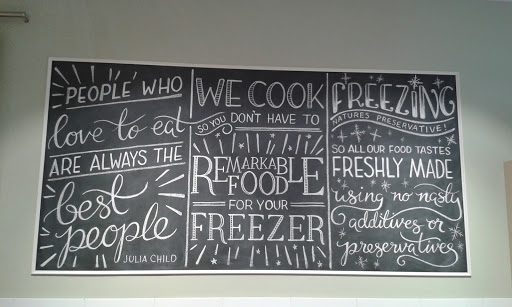 PEOPLE WHO
love to eat
ARE ALWAYS THE
best
people
JULIA CHILD
WE COOK
SO YOU DON'T HAVE TO
REMARKABLE
FOOD
FOR YOUR
FREEZER
FREEZING
NATURES PRESERVATIVE!
SO ALL OUR FOOD TASTES
FRESHLY MADE
using no nasty
additives or
preservatives